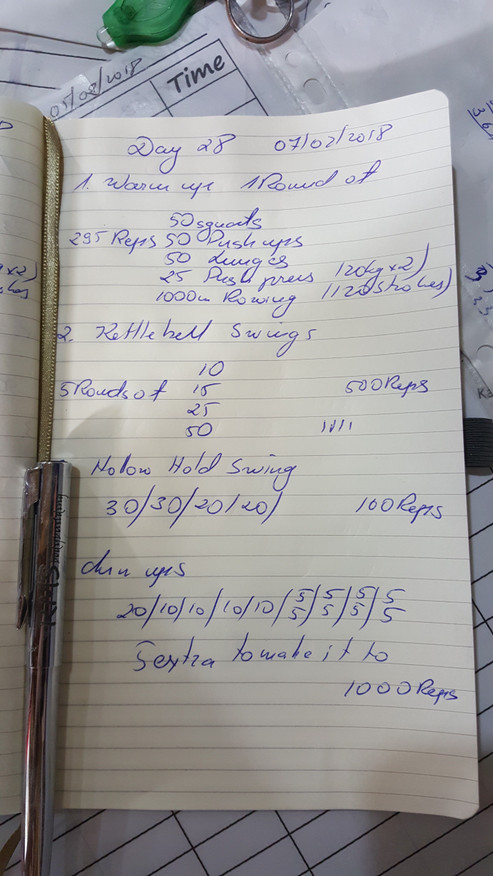 05/02/2018
Time
Day 28 07/02/2018
1. Warm ups 1 Round of
50 squats
295 Reps 50 Push ups
50 Lunges
25 Push press 12(kg x 2)
1000m Rowing (120 strokes)
2. Kettlebell Swings
10
5 Rounds of 15 500 Reps
25
50 IIII
Holow Hold Swing
30/30/20/20/ 100 Reps
chin ups
20/10/10/10/10/5/5/5/5
5/5/5/5
5 extra to make it to
1000 Reps